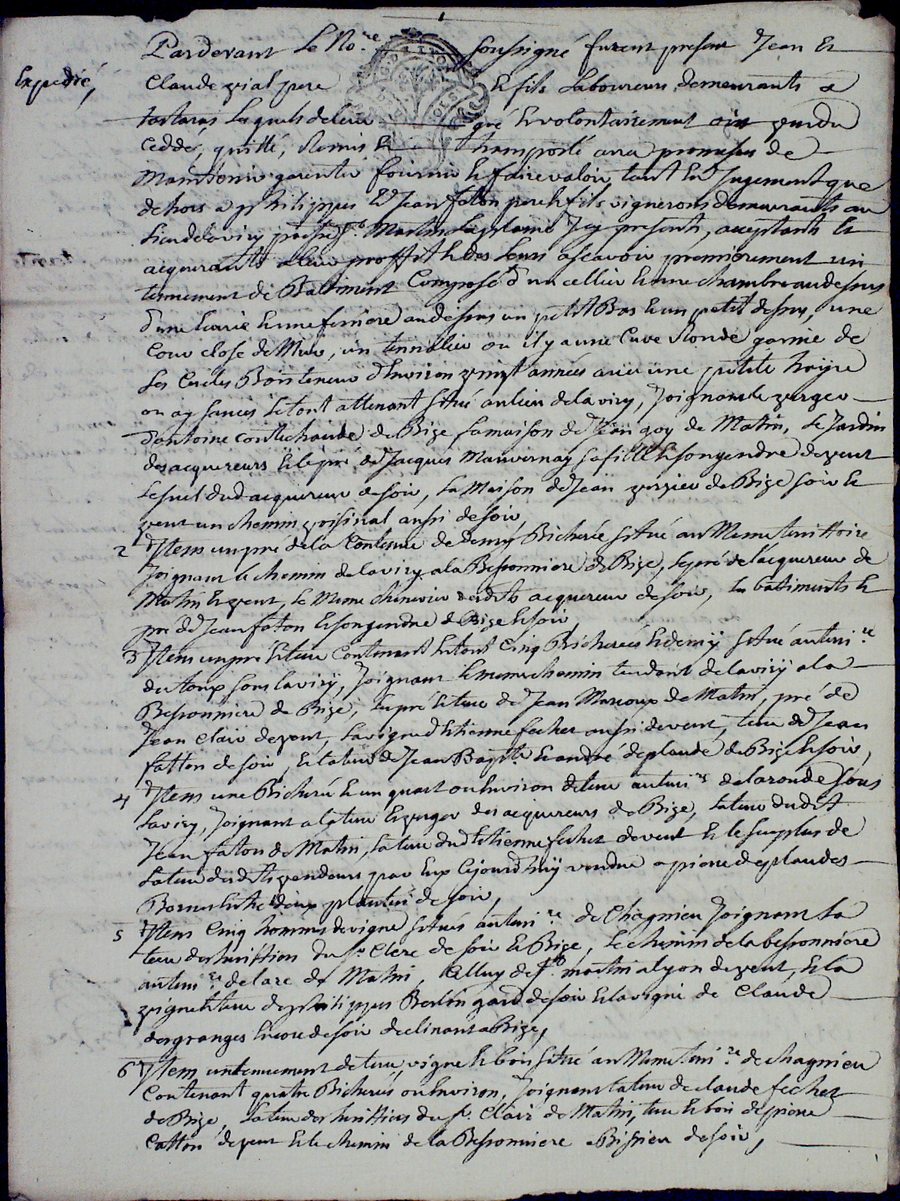 Pardevant Le No.re soussigné furent present Jean et
Expedié,
Claude vial pere et fils Laboureurs demeurants a
tartaras Lesquels de leur gré et volontairement ont vendu
Ceddé, quitté, Remis et transporté avec promesse de
Maintenir garentir fournir et faire valoir, tant En Jugement que
dehors a philippes et Jean faton pere et fils vignerons demeurants au
Lieu de laviry paroisse St. Martin La plaine Icy presents, acceptants et
acquerants a leur proffit et des Leurs ascavoir premierement un
tennement de Batiment Composé d'un cellier et une chambre au dessus
d'une Ecurie et une feniere au dessus un petit Bas et un petit dessus, une
Cour close de Murs, un tennalier ou il y a une Cuve Ronde garnie de
Ses Cercles Bon teneur d'Environ vingt années avec une petite
ou aysances Le tout attenant situé au lieu de laviry, Joignant le verger
d'antoine contechaude de Bize La maison de Jean goy de Matin, Le Jardin
des acquereurs et le pré de Jacques Mauvernay sa fille et son gendre de vent
Le fuel dud acquereur de soir, La Maison de Jean verrier de Bize soir et
vent un chemin voisinal aussi de soir,
2 Item un pré de la Contenue de demy Bicherée situé au Meme territtoire
Joignant le chemin de laviry a la Bessonniere de Bize, le pré de l'acquereur de
Matin et vent, le Meme chenevier desdits acquereur de soir, Les batiments et
pré de Jean faton et son gendre de Bize et soir,
3 Item un pré et terre Contenant Le tout Cinq Bicherées et demy situé au terri.re
du toux sous laviry, Joignant le meme chemin tendant de laviry a la
Bessonniere de Bize, Les pré et terre de Jean Marcoux de Matin, pré de
Jean Clair de vent, La vigne d'Etienne fechet aussi de vent, terre de Jean
fatton de soir, et la terre de Jean Baptiste et andré deplaude de Bize et soir,
4 Item une Bicherée et un quart ou Environ de terre au terri.re de la ronde sous
Laviry, Joignant a la terre et verger des acquereurs de Bize, La terre dudit
Jean faton de Matin, La terre dud Etienne fechet de vent et le surplus de
La terre desdits vendeurs par Eux Cejourd'huy vendue a pierre deplaudes
Bornes Entre deux plantées de soir,
5 Item Cinq hommes de vigne situés au terri.re de Chagnieu Joignant La
terre des heritiers du Sr. Clerc de soir et Bize, Le chemin de la bessonniere
au terri.re de lare de Matin, Celluy de Sr. martin a lyon de vent, et la
vigne et terre de philippes Berlin gard de soir et la vigne de Claude
desgranges Encore de soir declinant a Bize,
6 Item un tenement de terre, vigne et bois situé au Meme terri.re de chagnieu
Contenant quatre Bicherées ou Environ, Joignant la terre de claude fechet
de Bize, La terre des heritiers du Sr. Clair de Matin, terre et bois de pierre
Catton de vent et le chemin de la Bessonniere a Bissieu de soir,